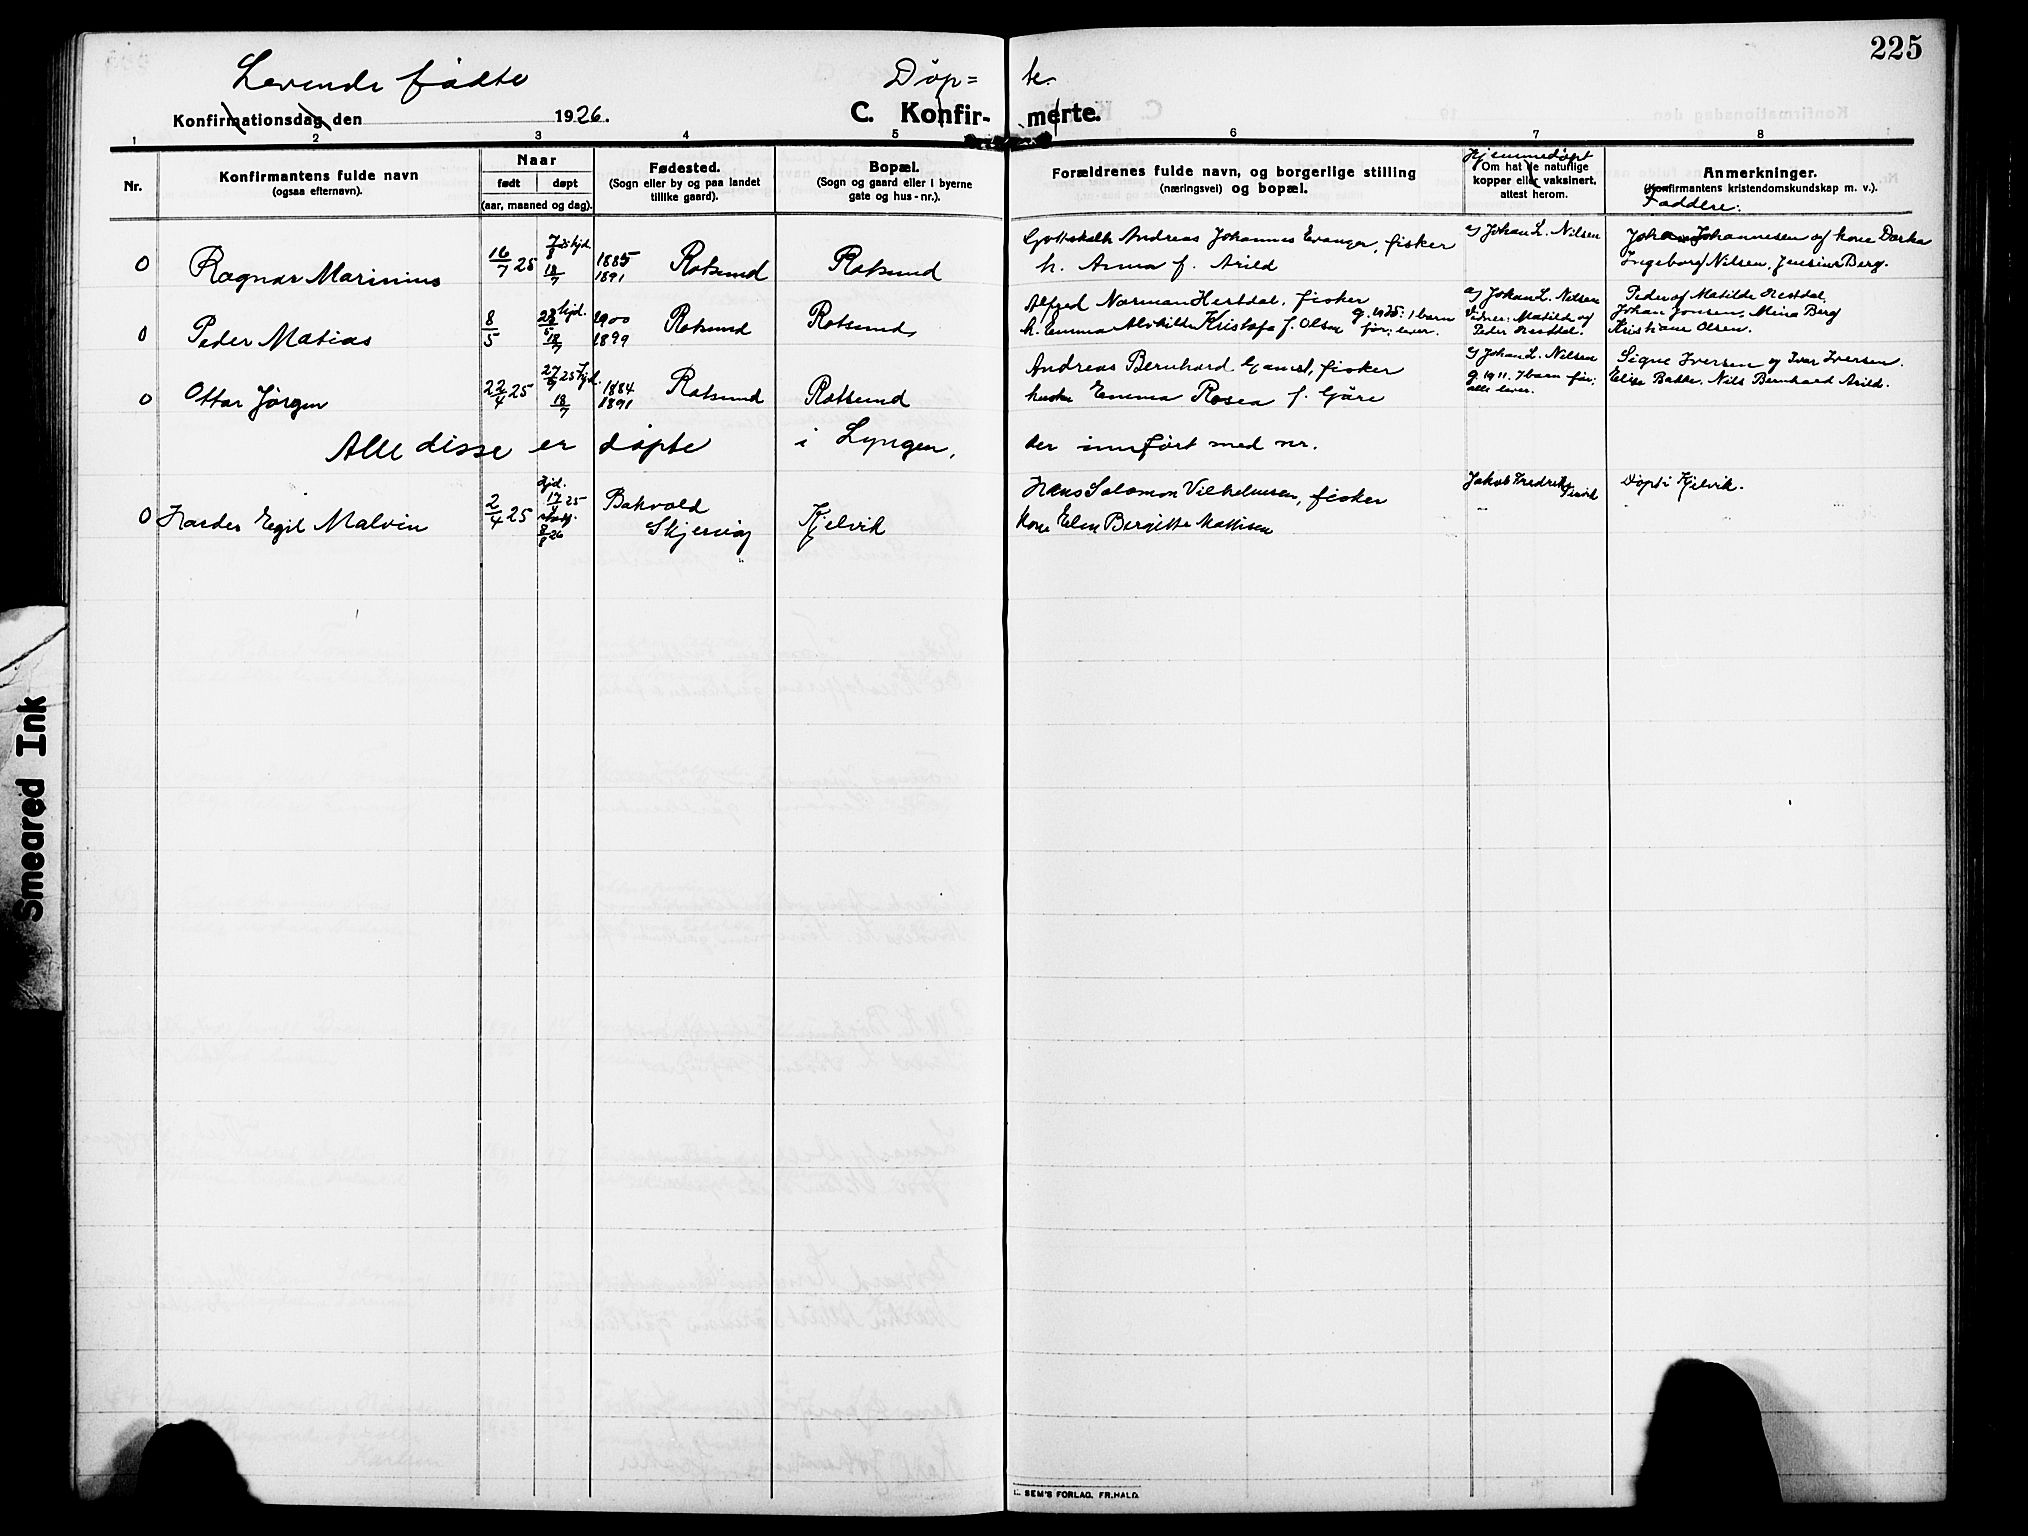 225
Levende fødte
Døp=
te.
Konfirmationsdag den 1926.
C. Konfir-
merte.
1 2 3 4 5 6 7 8
Nr.
Konfirmantens fulde navn
(ogsaa efternavn).
Naar
født døpt
(aar, maaned og dag).
Fødested.
(Sogn eller by og paa landet
tillike gaard).
Bopæl.
(Sogn og gaard eller i byerne
gate og hus-nr.).
Forældrenes fulde navn, og borgerlige stilling
(næringsvei) og bopæl.
Hjemmedøpt
Om hat de naturlige
kopper eller vaksinert,
attest herom.
Anmerkninger.
(Konfirmantens kristendomskundskap m. v.).
Faddere:
0 Ragnar Marinius 16/7 25 18/7 1885 1891 Rotsund Rotsund
Gottskalk Andreas Johannes Evanger, fisker
h. Anna f. Arild
af Johan L. Nilsen
Johan Johannesen og kone Dorka
Ingeborg Nilsen, Jensine Berg.
0 Peder Matias 8/5 18/7 1900 1899 Rotsund Rotsund
Alfred Norman Hestdal, fisker
h. Emma Alvhilde Kristofa f. Olsen g. 1925: 1 barn før; lever.
af Johan L. Nilsen
Vidner: Matilde og
Peder Hestdal.
Peder og Matilde Hestdal,
Johan Jonsen, Mina Berg
Kristiane Olsen.
0 Ottar Jørgen 22/4 25 27/4 25 hjd. 18/7 1884 1891 Rotsund Rotsund
Andreas Bernhard Gamst, fisker
hustru Emma Rosea f. Gåre
af Johan L. Nilsen
g. 1911. 7 barn før;
alle lever.
Signe Iversen og Ivar Iversen.
Elise Bakke, Nils Bernhard Arild.
Alle disse er døpte i Lyngen,
der innført med nr.
0 Harder Egil Malvin 2/4 25 hjd. 17/4 25 stadf. 8/8 26 Bakvold Skjervøy Kjelvik
Hans Salomon Vilhelmsen, fisker
Kone Elen Bergitte Mattisen
Jakob Fredrik
Døpt i Kjelvik.
Smeared Ink
SEM'S FORLAG, FR.HALD.